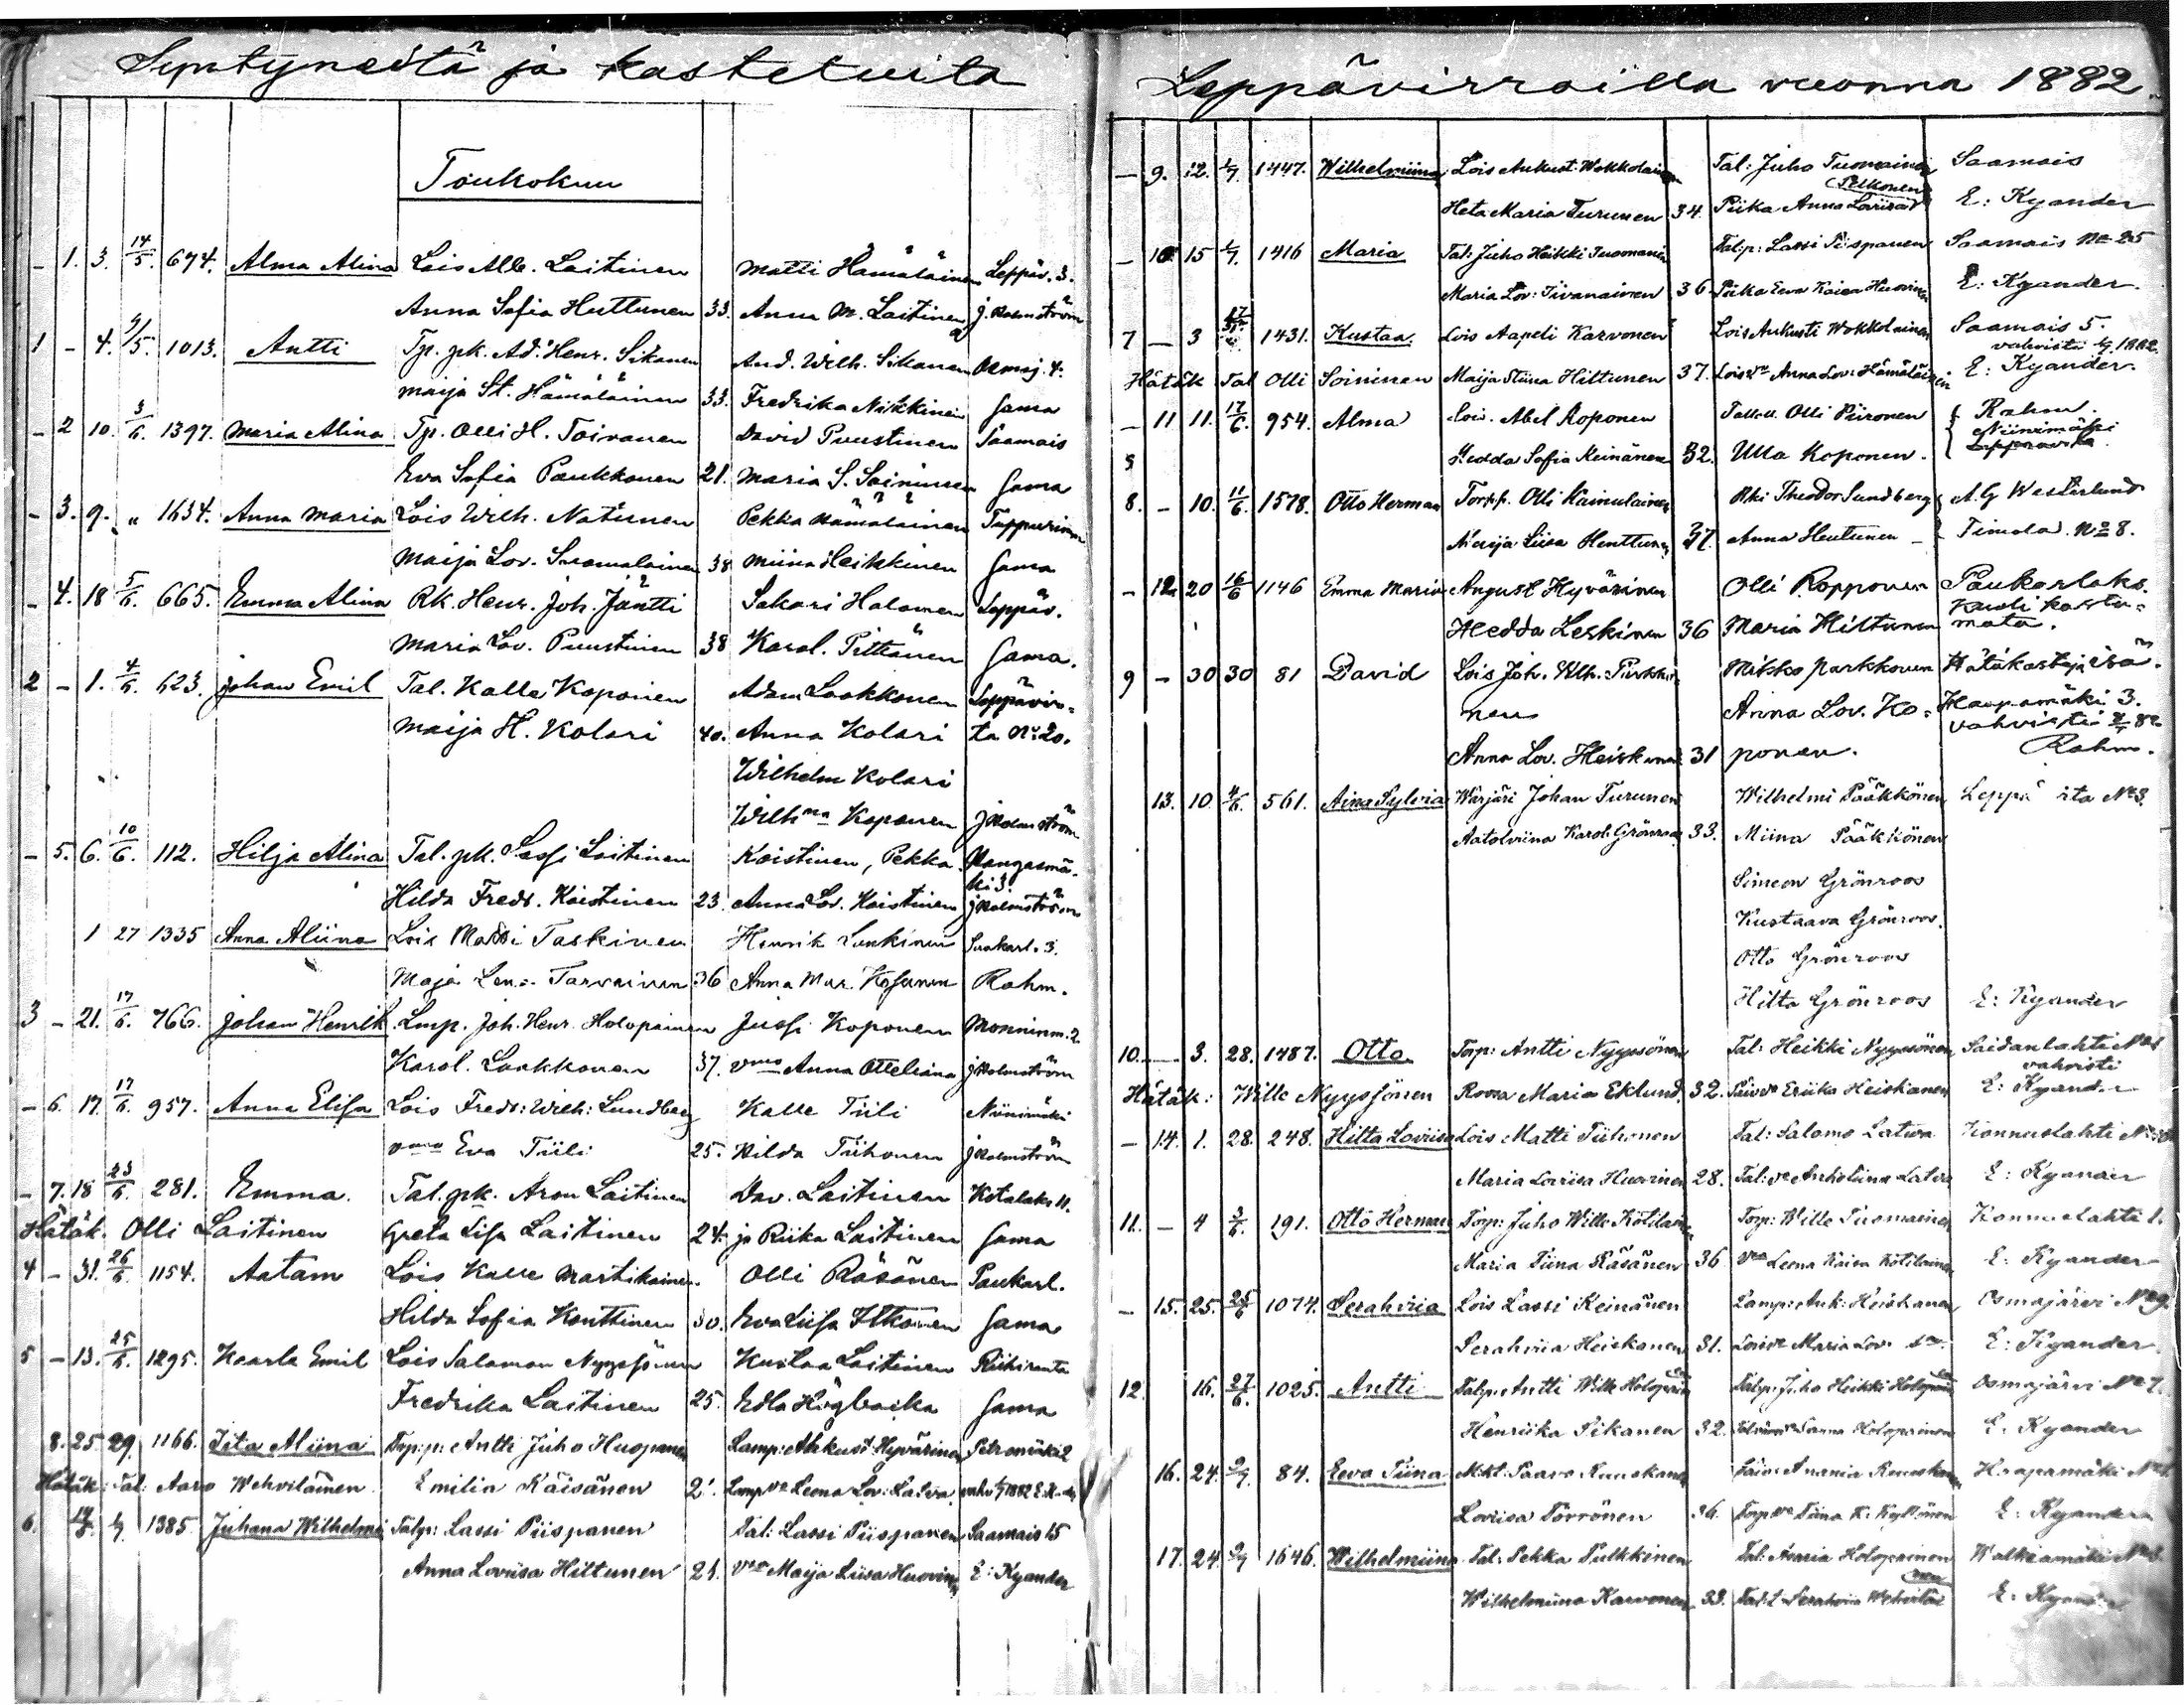 Syntyneitä ja kastetuita
Toukokuu
- 1. 3. 14/5. 674. Alma Alina Lois Alb. Laitinen Matti Hämäläinen Leppäv. 3.
Anna Sofia Huttunen 33. Anna M. Laitinen J. Holmström
1 - 4. 9/5. 1013. Antti Tp. pk. Ad. Henr. Sikanen And. Wilh. Sikanen Osmaj. 4.
Maija St. Hämäläinen 33. Fredrika Nikkinen Sama
- 2 10. 3/6. 1397. Maria Alina Tp. Olli H. Toivanen David Puustinen Saamais
Eva Sofia Paukkonen 21. Maria S. Soininen Sama
- 3. 9. " 1634. Anna Maria Lois Wilh. Natunen Pekka Hämäläinen
Maija Lov. Suomalainen 38 Miina Heikkinen Sama
- 4. 18 5/6. 665. Emma Alina RK. Henr. Joh. Jäntti Sakari Halonen Leppäv.
Maria Lov. Puustinen 38 Karol. Pittänen Sama.
2 - 1. 4/6. 623. Johan Emil Tal. Kalle Koponen Adam Laakkonen Leppävir-
Maija H. Kolari 40. Anna Kolari ta No 20.
Wilhelm Kolari
Wilhna Koponen J Holmström
- 5. 6. 10/6. 112. Hilja Alina Tal. pk. Lassi Laitinen Koistinen, Pekka Kangasmä-
ki 3.
Hilda Fredr. Koistinen 23. Anna Lov. Koistinen J Holmström
1 27 1335 Anna Aliina Lois Matti Taskinen Henrik Lunkinen Paukarl. 3.
Maja Len. Tarvainen 36 Anna Mar. Kosunen Rahm.
3 - 21. 17/6. 766. Johan Henrik Lmp. Joh. Henr. Holopainen Jussi Koponen Monninm. 2
Karol. Laakkonen 37. vmo Anna Otteliana J Holmström
- 6. 17. 17/6. 957. Anna Elisa Lois Fredr: Wilh: Lundberg Kalle Tiili Niinimäki
vmo Eva Tiili 25. Hilda Tiihonen J Holmström
- 7. 18 23/6. 281. Emma. Tal. pk. Aron Laitinen Dav. Laitinen Kotalaks 11.
Hätäk. Olli Laitinen Greta Lisa Laitinen 24. ja Riika Laitinen Sama
4 - 31. 26/6. 1154. Aatam Lois Kalle Martikainen Olli Räsänen Paukarl.
Hilda Sofia Konttinen 30. Eva Liisa Itkonen Sama
5 - 13. 25/6. 1295. Kaarle Emil Lois Salomon Nyyssönen Kustaa Laitinen Riihiranta
Fredrika Laitinen 25. Edla Högbacka Sama
8. 25. 29. 1166. Iita Aliina Torp:p: Antti Juho Huopanen Lamp: Aukust Hyvärinen Petromäki 2
Hätäk: Tal: Aaro Wehviläinen Emilia Räisänen Lmp va Leena Lov: Latva
6. 1385. Juhana Wilhelmi Talp: Lassi Piispanen Tal: Lassi Piispanen Saamais 15
Anna Loviisa Hiltunen 21. vmo Maija Liisa Huovinen E: Kyander
Leppävirroilla vuonna 1882.
- 9. 12. 1/7. 1447. Wilhelmiina Lois Aukust Wokkolainen Tal: Juho Tuomainen Saamais
Pelkonen
Heta Maria Turunen 34. Piika Anna Loviisa E: Kyander
- 10 15 1/7. 1416 Maria Tal: Juho Heikki Tuomainen Talp: Lassi Piispanen Saamais No 25
Maria Lov: Iivanainen 36. Piika Eeva Kaisa Huovinen E: Kyander.
7 - 3 1431. Kustaa Lois Aapeli Karvonen Lois Aukusti Wokkolainen Saamais 5.
vahvisti 1/7 1882.
Hätäk Tal Olli Soininen Maija Stiina Hiltunen 37. Lois va Anna Lov: Hämäläinen E: Kyander.
- 11 11. 17/6. 954. Alma Lois. Abel Koponen Olli Piironen Rahm.
Niinimäki
Hedda Sofia Keinänen 32. Ulla Koponen. Leppävirta.
8. - 10. 11/6. 1578. Otto Herman Torp.p. Olli Kainulainen Rki Theodor Sundberg A. G Westerlund
Maija Liisa Henttunen 37. Anna Heutunen - Timola No 8.
- 12. 20 16/6 1146 Emma Maria August Hyvärinen Olli Ropponen Paukarlaks.
kuoli kastu-
Hedda Leskinen 36 Maria Hiltunen mata.
9 - 30 30 81 David Lois Joh. Wlh. Pirkki- Mikko Parkkonen Hätäkastaja isä.
nen Anna Lov. Ko- Haapamäki 3.
vahvisti 82
Anna Lov. Heiskanen 31 ponen. Rahm.
13. 10. 4/6. 561. Aina Sylvia Wärjäri Johan Turunen Wilhelmi Pääkkönen Leppävirta No 3.
Aatolviina Karol. Grönroos 33. Miina Pääkkönen
Simeon Grönroos
Kustaava Grönroos.
Otto Grönroos
Hilta Grönroos E: Kyander
10. - 3. 28. 1487. Otto Torp: Antti Nyyssönen Tal: Heikki Nyyssönen Saidanlahti No 1
vahvisti
Hätäk: Wille Nyyssönen Roosa Maria Eklund 32. Eriika Heiskanen E: Kyander
- 14. 1. 28. 248. Hilta Loviisa Lois Matti Tiihonen Tal: Salomo Latva Konnuslahti
Maria Loviisa Huovinen 28. Tal: va Anholiina Latva E: Kyander
11. - 4 3/6. 191. Otto Herman Torp: Juho Wille Kötilainen Torp: Wille Tuomainen Konnuslahti 1.
Maria Tiina Räsänen 36. va Leena Kaisa Kötilainen E: Kyander
- 15. 25. 25/6 1074. Serahviia Lois Lassi Keinänen Lamp: Auk: Heiskanen Osmajärvi No 9.
Serahviia Heiskanen 31. Lois va Maria Lov. E: Kyander
12. 16. 27/6. 1025. Antti Talp. Antti Wille Holopainen Talp: Juho Heikki Holopainen Osmajärvi No 7.
Henriika Sikanen 32. Sanna Holopainen E: Kyander
16. 24. 2/7. 84. Eeva Tiina Paavo Ruuskanen Anania Ruuskanen Haapamäki
Loviisa Törrönen 36. Torp va Tiina K. Kyllönen E: Kyander
17. 24. 2/7 1646. Wilhelmiina Tal: Pekka Pulkkinen Tal: Asaria Holopainen Walkiamäki
Wilhelmiina Karvonen 33. Serahviia Wehviläinen E: Kyander